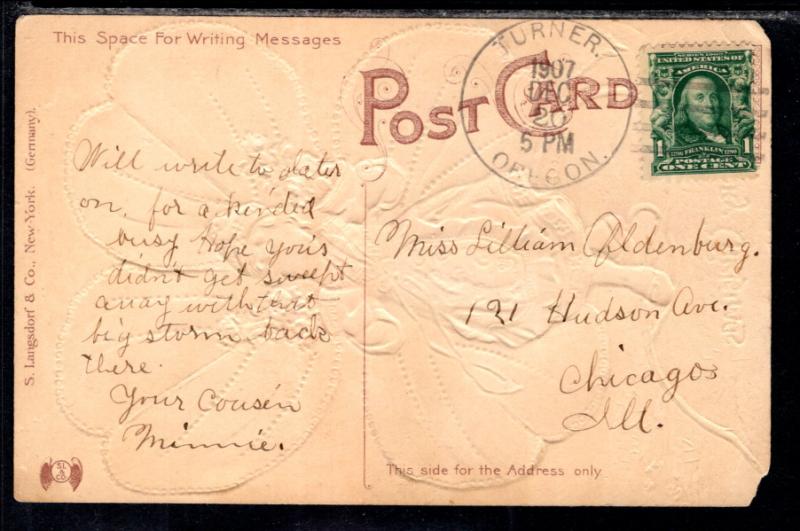 This Space For Writing Messages
POST CARD
TURNER.
1907
DEC
20
5 PM
OREGON.
UNITED STATES OF
AMERICA
1 FRANKLIN 1
POSTAGE
ONE CENT
S. Langsdorf & Co., New-York. (Germany).
S.L.
& CO.
Will write to later
on, for a kinded
busy Hope your's
didn't get sweept
away with that
big storm back
there.
Your Cousén
Minnie.
Miss Lilliam Oldenburg.
121 Hudson Ave.
Chicago
Ill.
This side for the Address only.